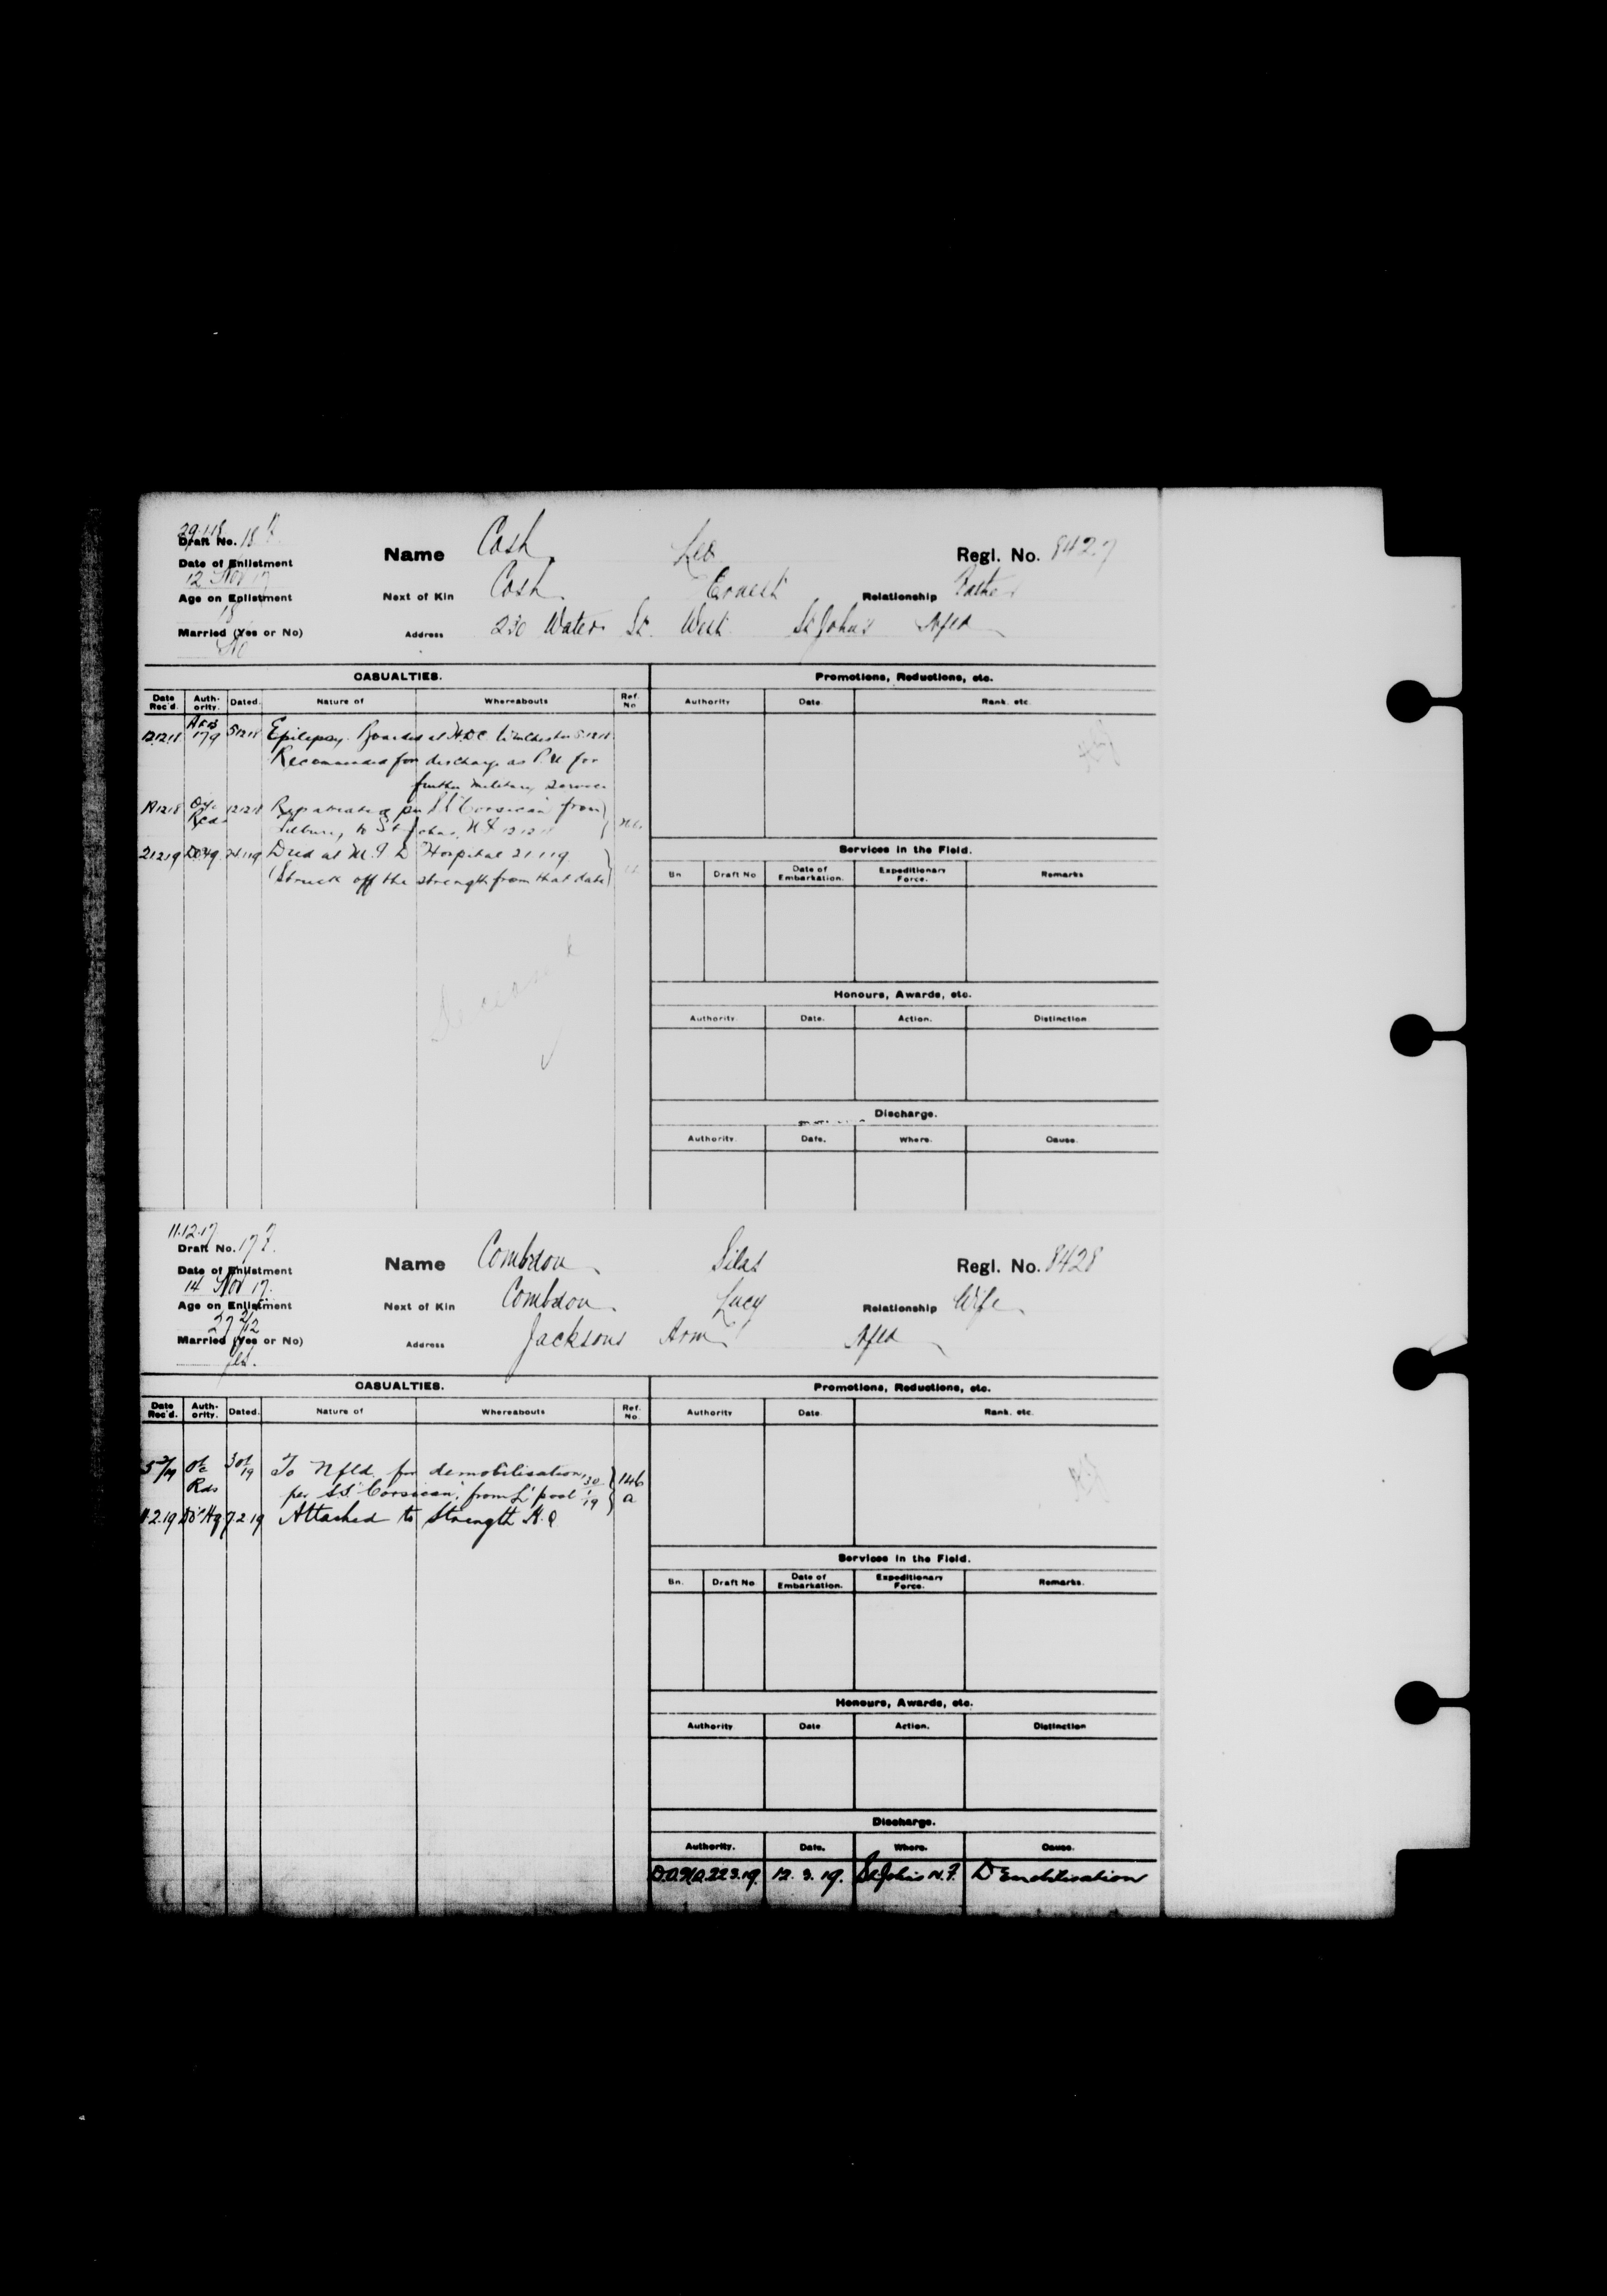 29.1.18
Draft No. 18
Name Cash Leo Regl. No. 8427
Date of Enlistment
12 Nov 17
Next of Kin Cash Ernest Relationship Father
Age on Enlistment
18
Address 230 Water St. West St John's Nfld
Married (Yes or No)
No
CASUALTIES. Promotions, Reductions, etc.
Date Rec'd. Auth-ority. Dated. Nature of Whereabouts Ref. No Authority Date Rank. etc.
12.12.18 AFB 179 5.12.18 Epilepsy. Boarded at H.D.C. Winchester 5.12.18
Recommended for discharge as P.U. for
further military service
19.12.18 O/c Rcds 12.12.18 Repatriated per SS Corsican from
Tilbury to St Johns, NF 12.12.18
21.2.19 21.1.19 Died at M.I.D. Hospital 21.1.19
(Struck off the strength from that date)
Deceased
Services in the Field.
Bn. Draft No Date of Embarkation. Expeditionary Force. Remarks
Honours, Awards, etc.
Authority. Date. Action. Distinction
Discharge.
Authority. Date. Where. Cause.
11.12.17
Draft No. 17
Name Combdon Silas Regl. No. 8428
Date of Enlistment
14 Nov 17.
Next of Kin Combdon Lucy Relationship Wife
Age on Enlistment
27 2/12
Address Jacksons Arm Nfld
Married (Yes or No)
Yes.
CASUALTIES. Promotions, Reductions, etc.
Date Rec'd. Auth-ority. Dated. Nature of Whereabouts Ref. No. Authority Date. Rank. etc.
5 2/19 O/c Rds 30/1/19 To Nfld. for demobilisation
per SS. 'Corsican', from L'pool 30/1/19 146 a
11.2.19 7.2.19 Attached to Strength H.Q
Services in the Field.
Bn. Draft No Date of Embarkation. Expeditionary Force. Remarks.
Honours, Awards, etc.
Authority Date Action. Distinction
Discharge.
Authority. Date. Where. Cause.
12.3.19. St Johns N.F. Demobilisation